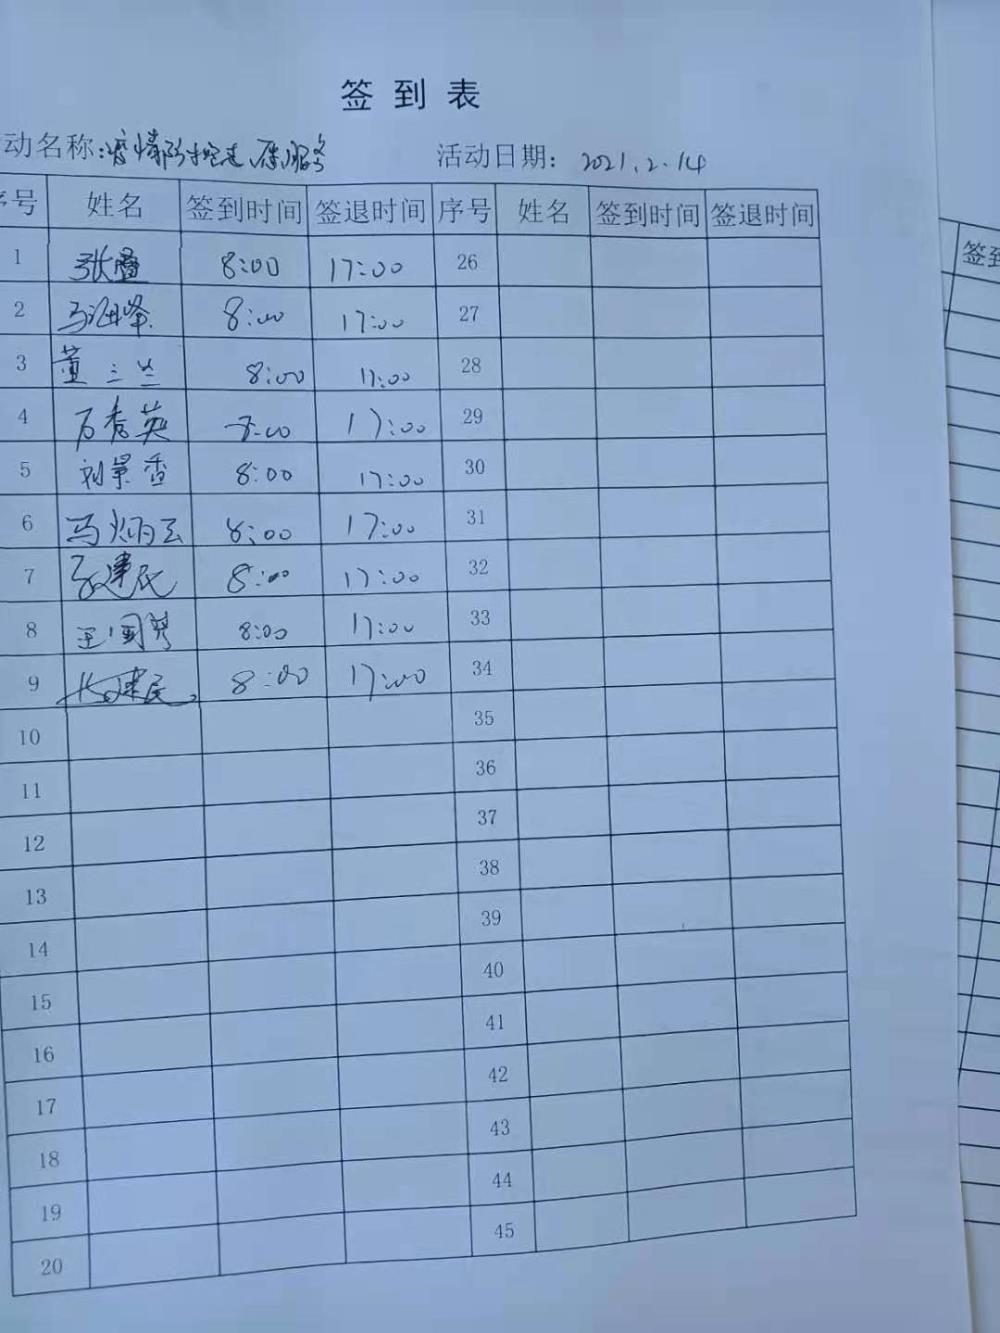 签到表
动名称:疫情防控志愿服务 活动日期: 2021.2.14
序号 姓名 签到时间 签退时间 序号 姓名 签到时间 签退时间
1 张 8:00 17:00 26
2 马 峰 8:00 17:00 27
3 董三兰 8:00 17:00 28
4 石秀英 8:00 17:00 29
5 刘景香 8:00 17:00 30
6 马炳云 8:00 17:00 31
7 建民 8:00 17:00 32
8 王国 8:00 17:00 33
9 建民 8:00 17:00 34
10 35
11 36
12 37
13 38
14 39
15 40
16 41
17 42
18 43
19 44
20 45
签到